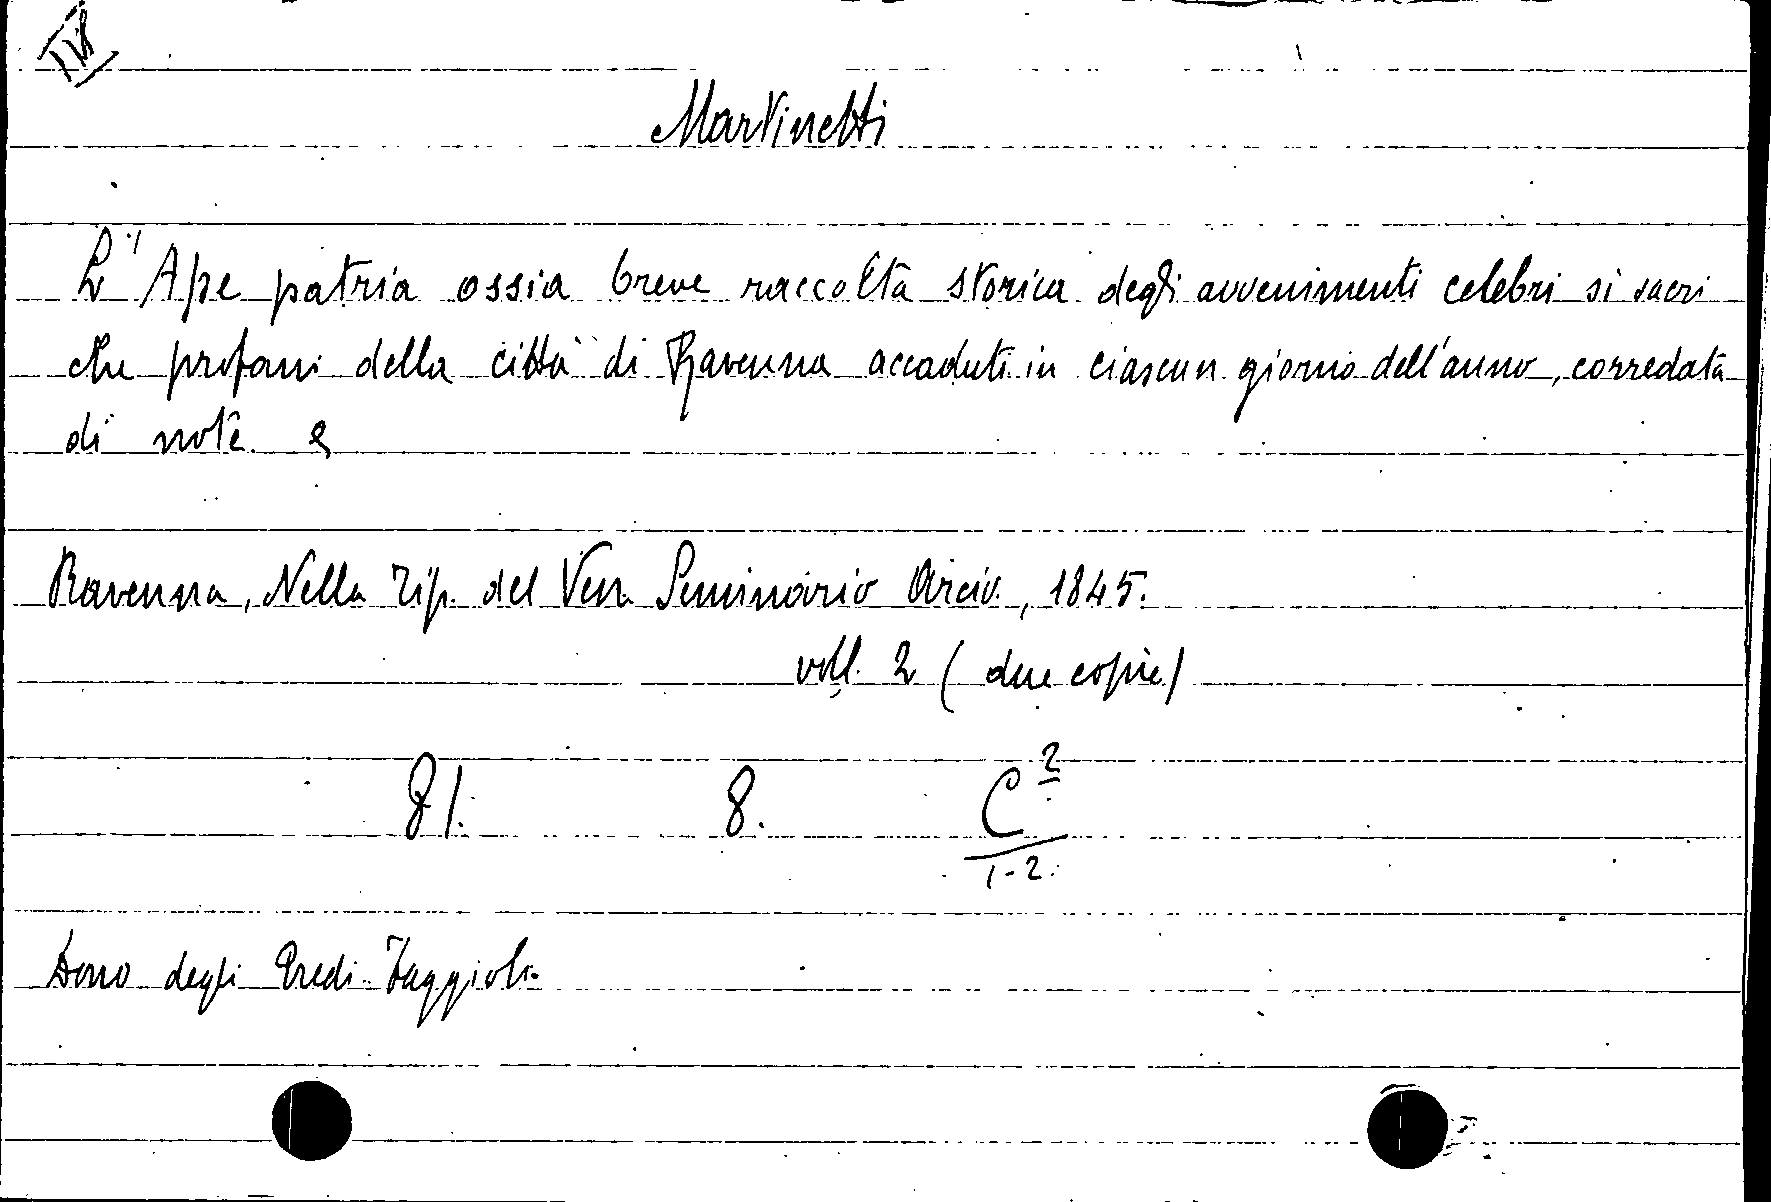 Martinetti
L'Ape patria ossia breve raccolta storica degli avvenimenti celebri si sacri
che profani della città di Ravenna accaduti in ciascun giorno dell'anno, corredata
di note
Ravenna, Nella Tip. del Ven. Seminario Arciv., 1845.
voll. 2 (due copie)
81. 8. C 2
1-2.
Dono degli Eredi Faggioli